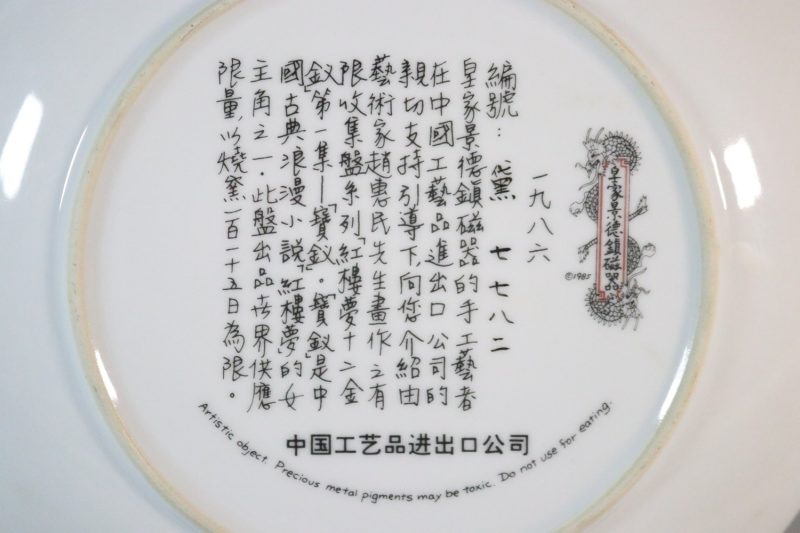 皇家景德鎮磁器
©1985
一九八六
編號: 七七八二
皇家景德鎮磁器的手工藝者
在中國工藝品進出口公司的
親切支持引導下,向您介紹由
藝術家趙惠民先生畫作之有
限收集盤系列「紅樓夢十二金
釵」第一集—「寶釵」。「寶釵」是中
國古典浪漫小說「紅樓夢」的女
主角之一.此盤出品世界供應
限量,以燒窯一百一十五日為限。
中国工艺品进出口公司
Artistic object. Precious metal pigments may be toxic. Do not use for eating.